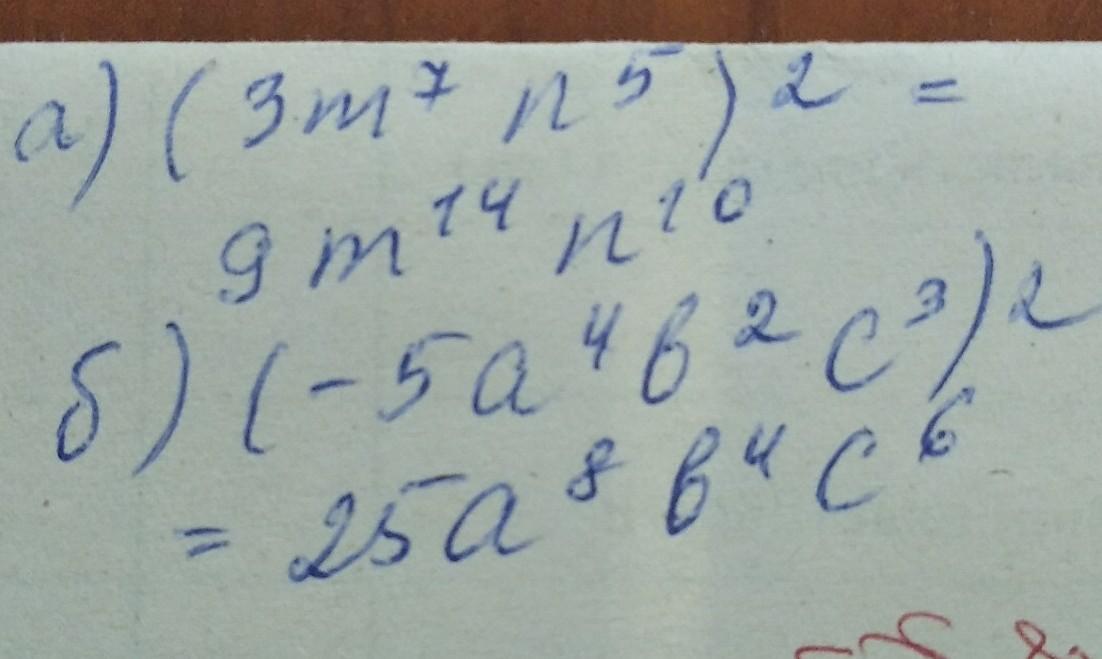 а) (3m⁷ n⁵)² =
9m¹⁴ n¹⁰
б) (-5a⁴ b² c³)²
= 25a⁸ b⁴ c⁶